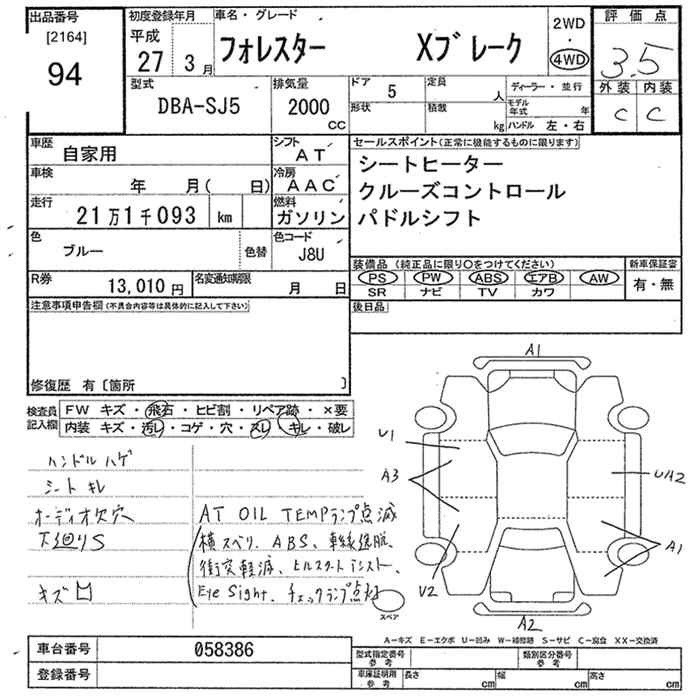 出品番号 初度登録年月 車名・グレード 2WD 評価点
[2164] 平成 フォレスター Xブレーク 4WD 3.5
94 27年 3月
型式 排気量 ドア 5 定員 人 ディーラー・並行 外装 内装
DBA-SJ5 2000 CC 形状 積載 kg モデル年式 年 C C
ハンドル 左・右
車歴 自家用 シフト AT セールスポイント(正常に機能するものに限ります)
車検 年 月( 日) 冷房 AAC シートヒーター
走行 21万1千093 km 燃料 ガソリン クルーズコントロール
パドルシフト
色 ブルー 色替 色コード J8U
装備品(純正品に限り○をつけてください) 新車保証書
R券 13,010円 名変通知期限 月 日 PS PW ABS エアB AW 有・無
SR ナビ TV カワ
注意事項申告欄(不具合内容等は具体的に記入して下さい) 後日品
修復歴 有〔箇所 〕
検査員記入欄 FW キズ・飛石・ヒビ割・リペア跡・×要
内装 キズ・汚レ・コゲ・穴・スレ・キレ・破レ
ハンドルハゲ
シートキレ
オーディオ欠穴
下廻りS
キズ
AT OIL TEMPランプ点滅
横スベリ、ABS、車線逸脱、
衝突軽減、ヒルスタートアシスト、
Eye Sight、チェックランプ点灯
A1
U1
A3
UA2
A1
V2
A2
スペア
A-キズ E-エクボ U-凹み W-補修跡 S-サビ C-腐食 XX-交換済
車台番号 058386 型式指定番号 参考 類別区分番号 参考
登録番号 車庫証明用 参考 長さ cm 幅 cm 高さ cm